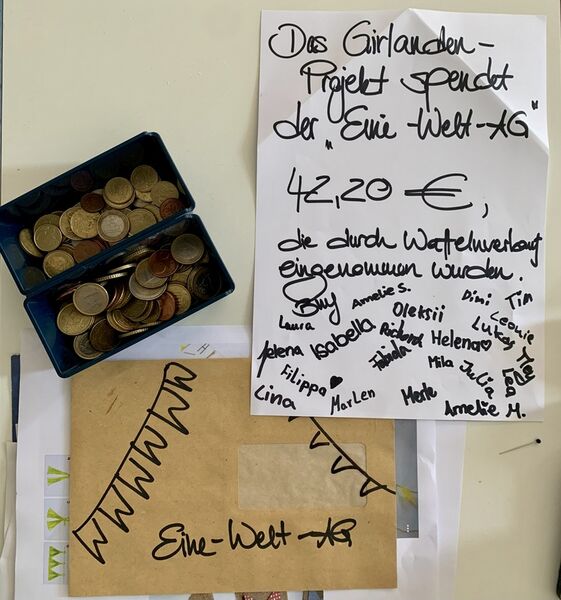 Das Girlanden-
Projekt spendet
der „Eine-Welt-AG"
42,20 €,
die durch Waffelnverkauf
eingenommen wurden.
Amelie S.
Dimi
Tim
Laura
Oleksii
Leonie
Jelena
Isabella
Richard
Helena
Lukas
Filippa
Mila
Julia
Lea
Lina
MarLen
Merle
Amelie M.
Eine-Welt-AG